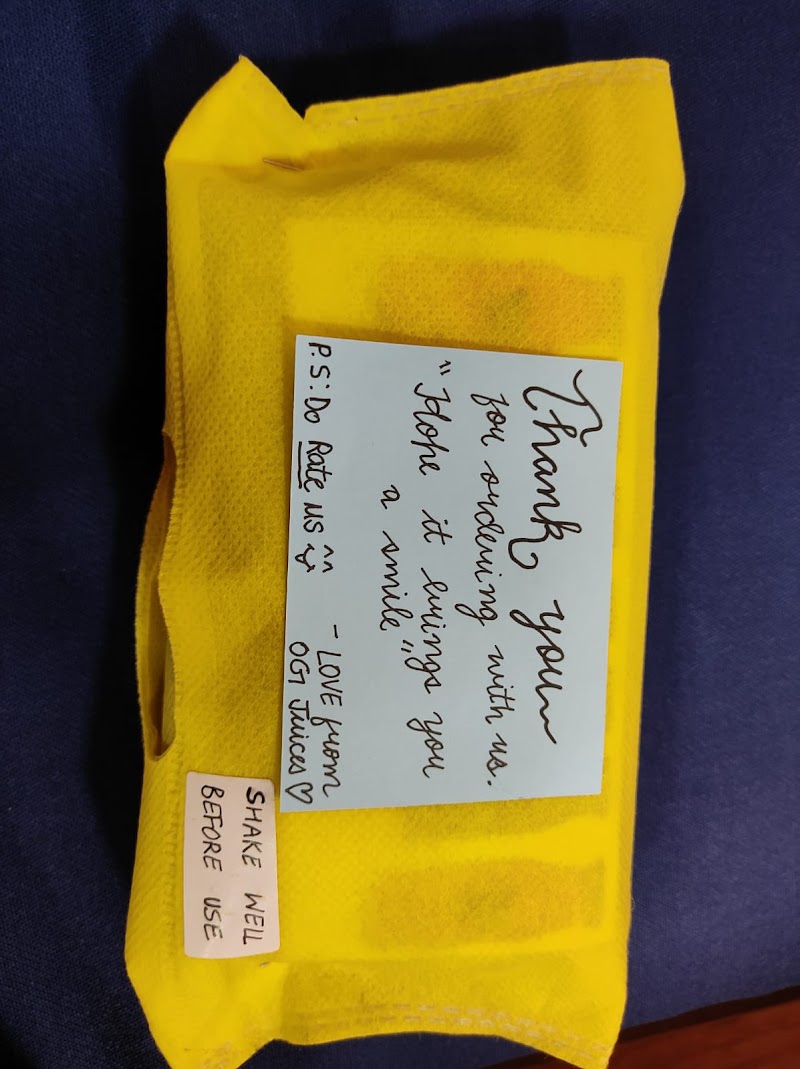 Thank you
for ordering with us.
"Hope it brings you
a smile"
- LOVE from
OG1 Juices♡
P.S: Do Rate us ^^
SHAKE WELL
BEFORE USE